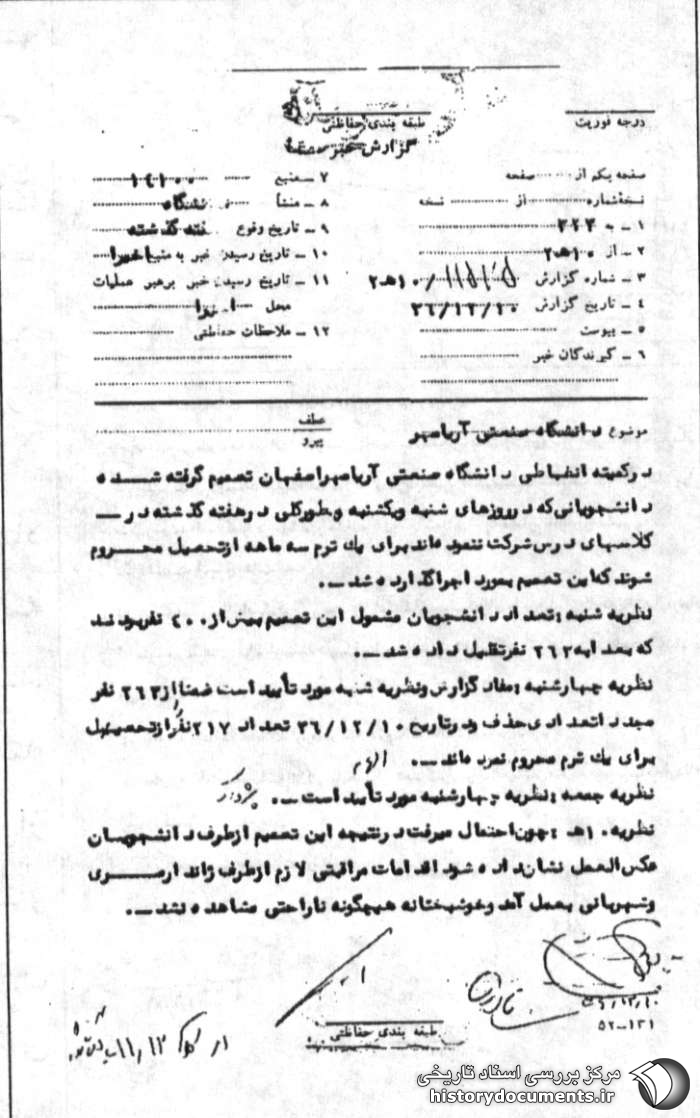 درجه فوریت
طبقه بندی حفاظتی
گزارش خبر
صفحه یکم از صفحه
نسخه شماره از نسخه
۱ – به ۳۲۲
۲ – از ۱۰هـ۲
۳ – شماره گزارش ۱۰هـ۲/
۴ – تاریخ گزارش ۳۶/۱۲/۱۰
۵ – پیوست
۶ – گیرندگان خبر
۷ – منبع ۱۴۱۰۰
۸ – منشأ
۹ – تاریخ وقوع هفته گذشته
۱۰ – تاریخ رسیدن خبر به منبع اخیرا
۱۱ – تاریخ رسیدن خبر برهبر عملیات
محل اخیرا
۱۲ – ملاحظات حفاظتی
موضوع دانشگاه صنعتی آریامهر
عطف
پیرو
درکمیته انضباطی دانشگاه صنعتی آریامهراصفهان تصمیم گرفته شده
دانشجویانی که درروزهای شنبه ویکشنبه وبطورکلی درهفته گذشته در –
کلاسهای درس شرکت ننموده اندبرای یک ترم سه ماهه ازتحصیل محروم
شوند که این تصمیم بمورد اجراگذارده شد –.
نظریه شنبه : تعداد دانشجویان مشمول این تصمیم بیش از ۴۰۰ نفربودند
که بعدا به ۲۶۲ نفرتقلیل داده شد –.
نظریه چهارشنبه : مفاد گزارش ونظریه شنبه مورد تأیید است ضمنا از ۲۶۳ نفر
مجددا تعدادی حذف ودرتاریخ ۳۶/۱۲/۱۰ تعداد ۲۱۷ نفر ازتحصیل
برای یک ترم محروم نموده اند –. الهام
نظریه جمعه : نظریه چهارشنبه مورد تأیید است –.
نظریه ۱۰هـ : چون احتمال میرفت درنتیجه این تصمیم ازطرف دانشجویان
عکس العمل نشان داده شود اقدامات مراقبتی لازم ازطرف ژاندارمری
وشهربانی بعمل آمد وخوشبختانه هیچگونه ناراحتی مشاهده نشد –.
۱۲/۱۰
۵۲–۱۳۱
طبقه بندی حفاظتی
مرکز بررسی اسناد تاریخی
historydocuments.ir